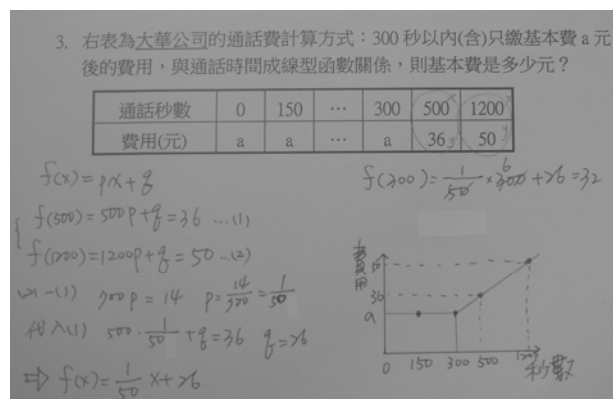 3. 右表為大華公司的通話費計算方式：300 秒以內(含)只繳基本費 a 元
後的費用，與通話時間成線型函數關係，則基本費是多少元？
通話秒數 0 150 … 300 500 1200
費用(元) a a … a 36 50
f(x)=px+q
f(300)=1/50×300+26=32
6
f(500)=500p+q=36 …(1)
f(1200)=1200p+q=50 …(2)
(2)-(1) 700p=14 p=14/700=1/50
代入(1) 500·1/50+q=36 q=26
⇒ f(x)=1/50 x+26
費用
50
36
a
0 150 300 500 1200
秒數